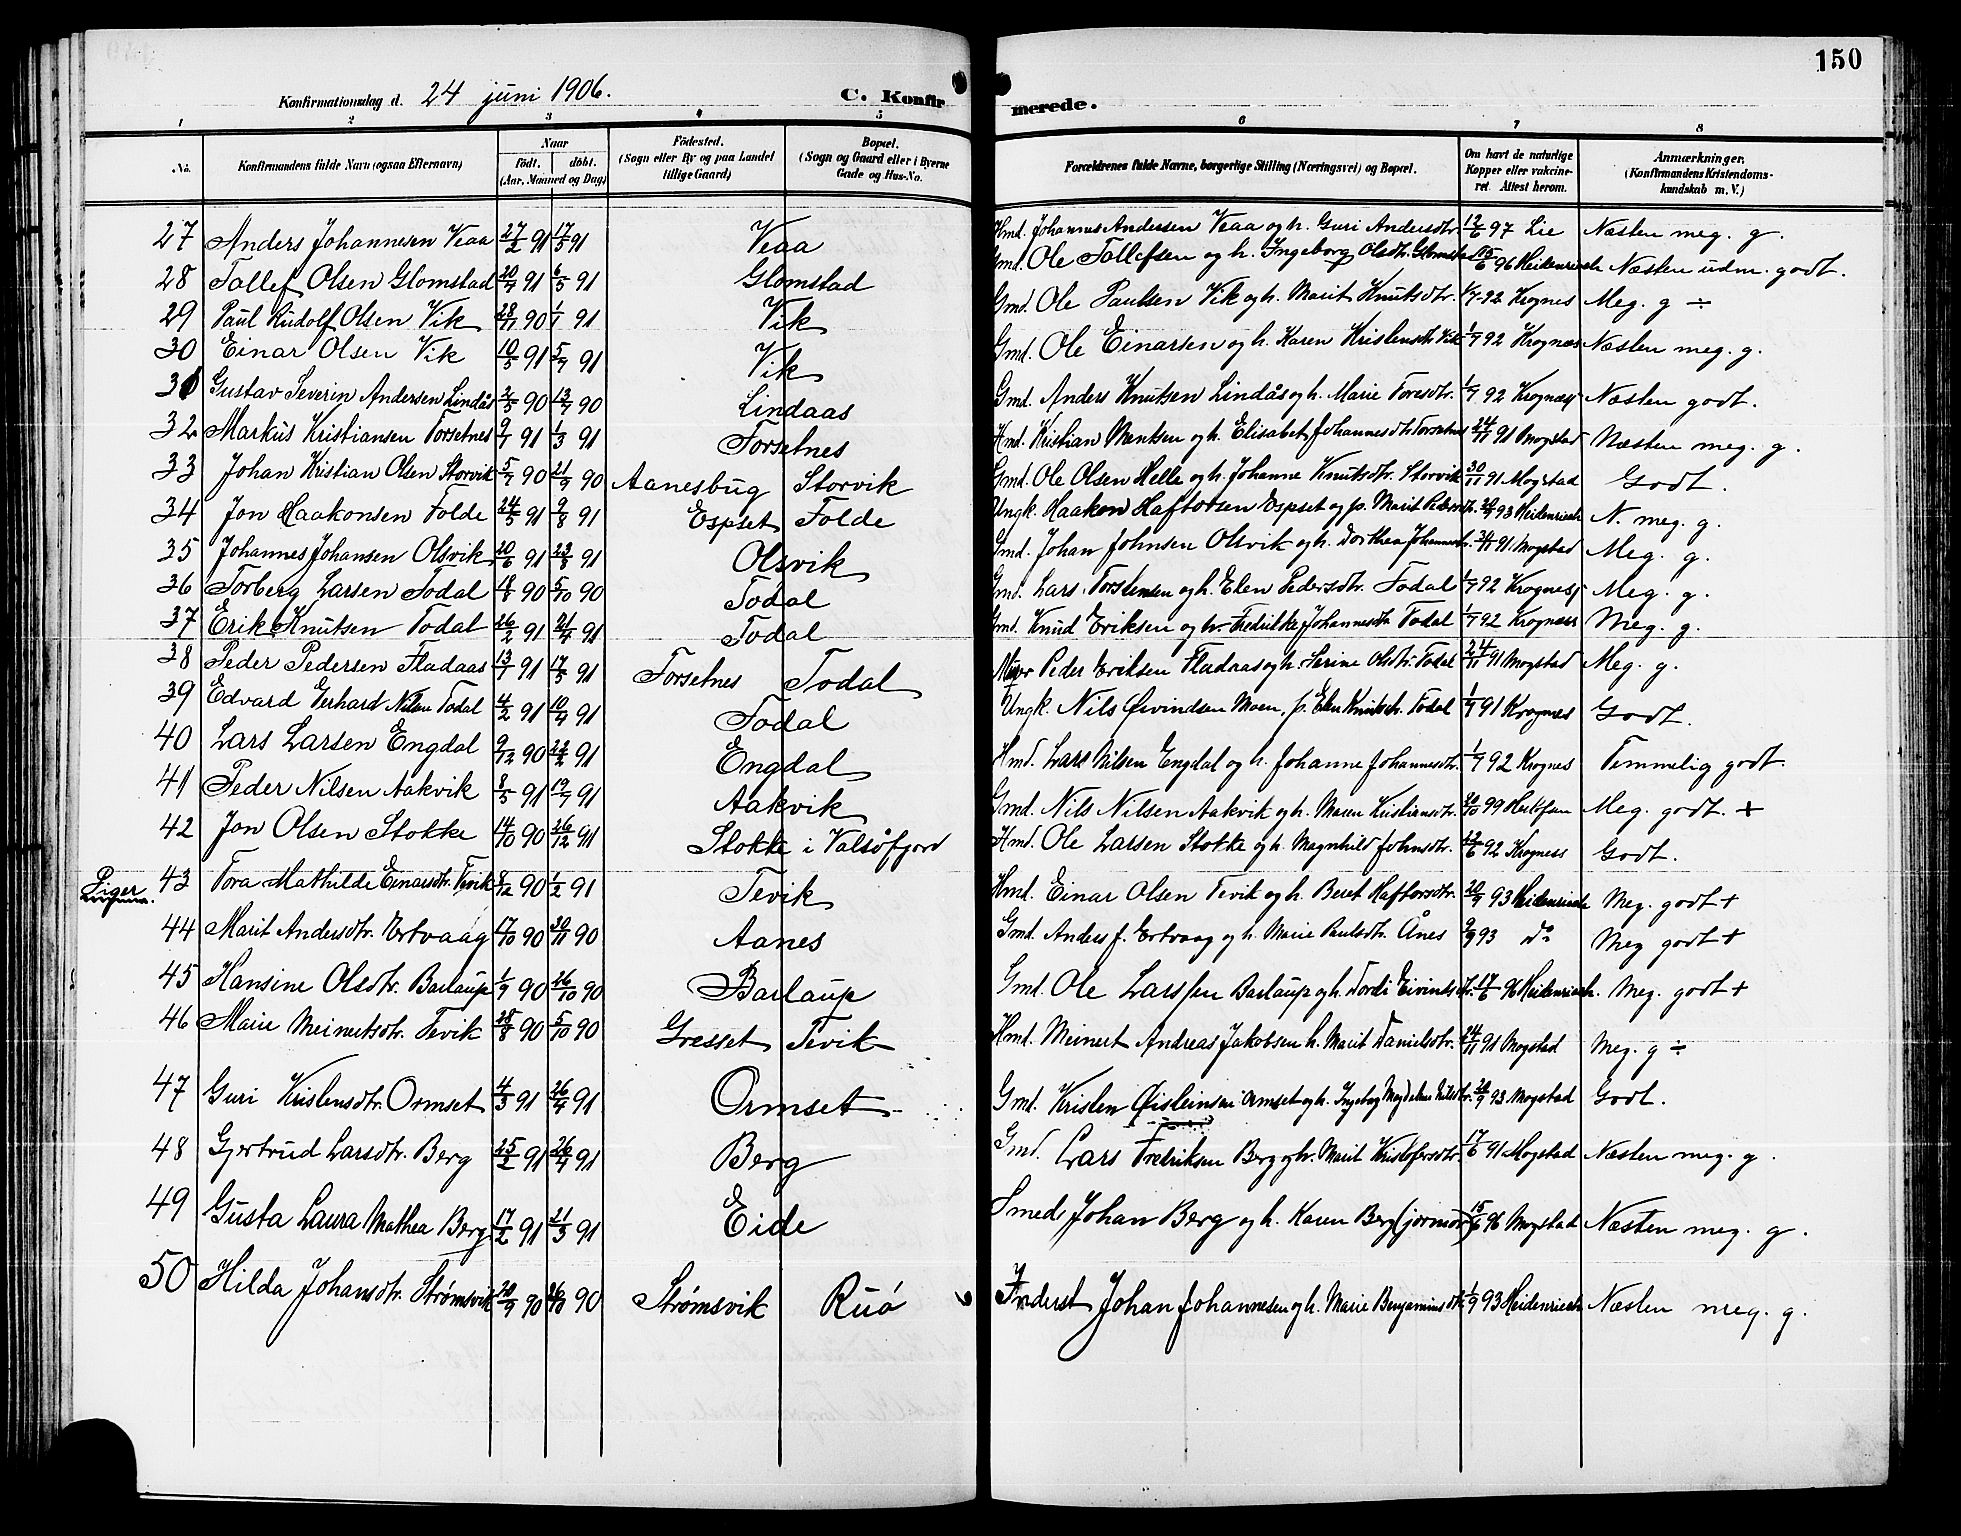 150
Konfirmationsdag d. 24 juni 1906. C. Konfirmerede.
1 2 3 4 5 6 7 8
No. Konfirmandens fulde Navn (ogsaa Efternavn) Naar födt. döbt. (Aar, Maaned og Dag) Födested. (Sogn eller By og paa Landet tillige Gaard) Bopæl. (Sogn og Gaard eller i Byerne Gade og Hus-No. Forældrenes fulde Navne, borgerlige Stilling (Næringsvei) og Bopæl. Om havt de naturlige Kopper eller vaccineret. Attest herom. Anmærkninger. (Konfirmandens Kristendomskundskab m. V.)
27 Anders Johannesen Veaa 27/2 91 17/5 91 Veaa Hmd. Johannes Andersen Veaa og h. Guri Andersdtr. 12/6 97 Lie Næsten meg. g.
28 Tollef Olsen Glomstad 20/4 91 6/5 91 Glomstad Gmd. Ole Tollefsen og h. Ingeborg Olsdtr. Glomstad 15/6 96 Heidenreich Næsten udm. godt.
29 Paul Rudolf Olsen Vik 28/11 90 1/1 91 Vik Gmd. Ole Paulsen Vik og h. Marit Knutsdtr. 1/7 92 Krognes Meg. g ÷
30 Einar Olsen Vik 10/5 91 5/7 91 Vik Gmd. Ole Einarsen og h. Karen Kristensdtr Vik 1/7 92 Krognæs Næsten meg. g.
31 Gustav Severin Andersen Lindås 2/5 90 13/7 90 Lindaas Gmd. Anders Knutsen Lindås og h. Marie Toresdtr. 1/7 92 Krognæs Næsten godt.
32 Markus Kristiansen Torsetnes 9/1 91 1/3 91 Torsetnes Hmd. Kristian Mentsen og h. Elisabet Johannesdtr. Torsetnes 24/11 91 Mogstad Næsten meg. g.
33 Johan Kristian Olsen Storvik 5/7 90 21/9 90 Aanesbug Storvik Gmd. Ole Olsen Helle og h. Johanne Knutsdtr. Storvik 30/11 91 Mogstad Godt.
34 Jon Haakonsen Folde 24/5 91 9/8 91 Espset Folde Ungk. Haakon Haftorsen Espset og p. Marit 20/9 93 Heidenreich N. meg. g.
35 Johannes Johansen Olsvik 20/6 91 23/8 91 Olsvik Gmd. Johan Johnsen Olsvik og h. Dorthea 24/11 91 Mogstad Meg. g.
36 Torberg Larsen Todal 18/8 90 5/10 90 Todal Gmd. Lars Torstensen og h. Elen Pedersdtr. Todal 1/7 92 Krognes Meg. g.
37 Erik Knutsen Todal 26/2 91 21/4 91 Todal Gmd. Knud Eriksen og h. Fredrikke Johannesdtr Todal 1/7 92 Krogness Meg. g.
38 Peder Pedersen Fladaas 13/1 91 17/5 91 Torsetnes Todal Peder Eriksen Fladaas og h. Sarine Olsdtr. Todal 24/11 91 Mogstad Meg. g.
39 Edvard Gerhard Nilsen Todal 4/2 91 10/4 91 Todal Ungk. Nils Øivindsen Moen, p. Elen Knutsdtr. Todal 1/7 91 Krognes Godt.
40 Lars Larsen Engdal 9/12 90 22/2 91 Engdal Hmd. Lars Nilsen Engdal og h. Johanne Johannesdtr. 1/7 92 Krognes Temmelig godt.
41 Peder Nilsen Aakvik 8/5 91 19/7 91 Aakvik Gmd. Nils Nilsen Aakvik og h. Maren Kristiansdtr. 20/10 99 Meg. godt. +
42 Jon Olsen Stokke 14/10 90 26/12 91 Stokke i Valsöfjord Hmd. Ole Larsen Stokke og h. Magnhild Johnsdtr. 12/6 92 Krogness Godt.
Piger
43 Tora Mathilde Einarsdtr. Tevik 8/12 90 1/2 91 Tevik Hmd. Einar Olsen Tevik og h. Beret Haftorsdtr. 20/9 93 Heidenreich Meg. godt +
44 Marit Andersdtr. Ertvaag 17/10 90 30/11 90 Aanes Gmd. Anders J. Ertvaag og h. Marie Paulsdtr. Ånes 9/9 93 do Meg godt +
45 Hansine Olsdtr. Barlaup 1/9 90 26/10 90 Barlaup Gmd. Ole Larssen Barlaup og h. Dordi Eivindsdtr. 17/6 96 Heidenreich. Meg. godt +
46 Marie Meinertsdtr. Tevik 28/8 90 5/10 90 Gresset Tevik Hmd. Meinert Andreas Jakobsen h. Marit Danielsdtr. 24/11 91 Mogstad Meg. g ÷
47 Guri Kristensdtr. Ormset 4/3 91 26/4 91 Ormset Gmd. Kristen Øisteinsen Ormset og h. Ingeborg Magdalena Nilsdtr. 20/9 93 Mogstad Godt.
48 Gjertrud Larsdtr. Berg 25/2 91 26/4 91 Berg Gmd. Lars Fredriksen Berg og h. Marit Kristofersdtr. 17/6 91 Mogstad Næsten meg. g.
49 Gusta Laura Mathea Berg 17/2 91 21/3 91 Eide Smed Johan Berg og h. Karen Berg (jormor) 15/6 96 Mogstad Næsten meg. g.
50 Hilda Johansdtr. Strømsvik 20/9 90 26/10 90 Strømsvik Ruö Inderst Johan Johannesen og h. Marie Benjaminsdtr. 1/9 93 Heidenreich Næsten meg. g.